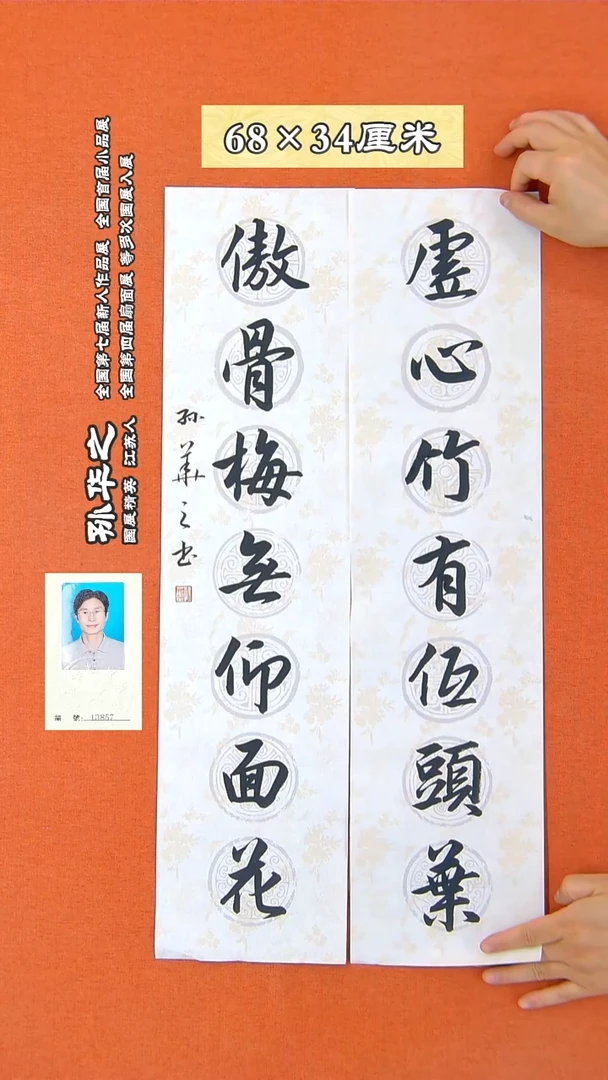 68×34厘米
虚心竹有低頭葉
傲骨梅無仰面花
孙華之书
全国第七届新人作品展 全国首届小品展
全国第四届扇面展 等多次国展入展
孙华之
国展精英 江苏人
编 號: 13857